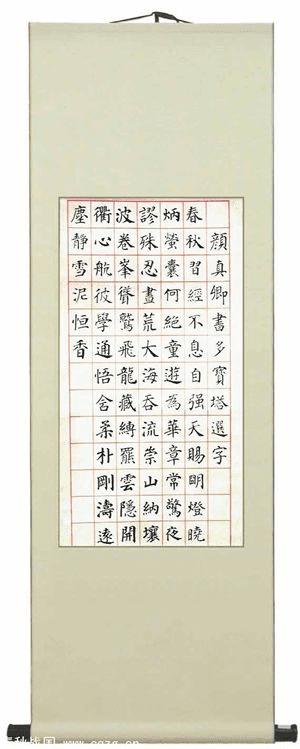 顏真卿書多寶塔選字
春秋習經不息自强天賜明燈曉
炳螢囊何絕童遊為華章常驚夜
謬殊忍晝荒大海吞流崇山納壤
波卷峯聳鷲飛龍藏縛羅雲隱開
衢心航彼學通悟舍柔朴剛濤遠
塵靜雪泥恒香
秋战国
www.cqzg.cn